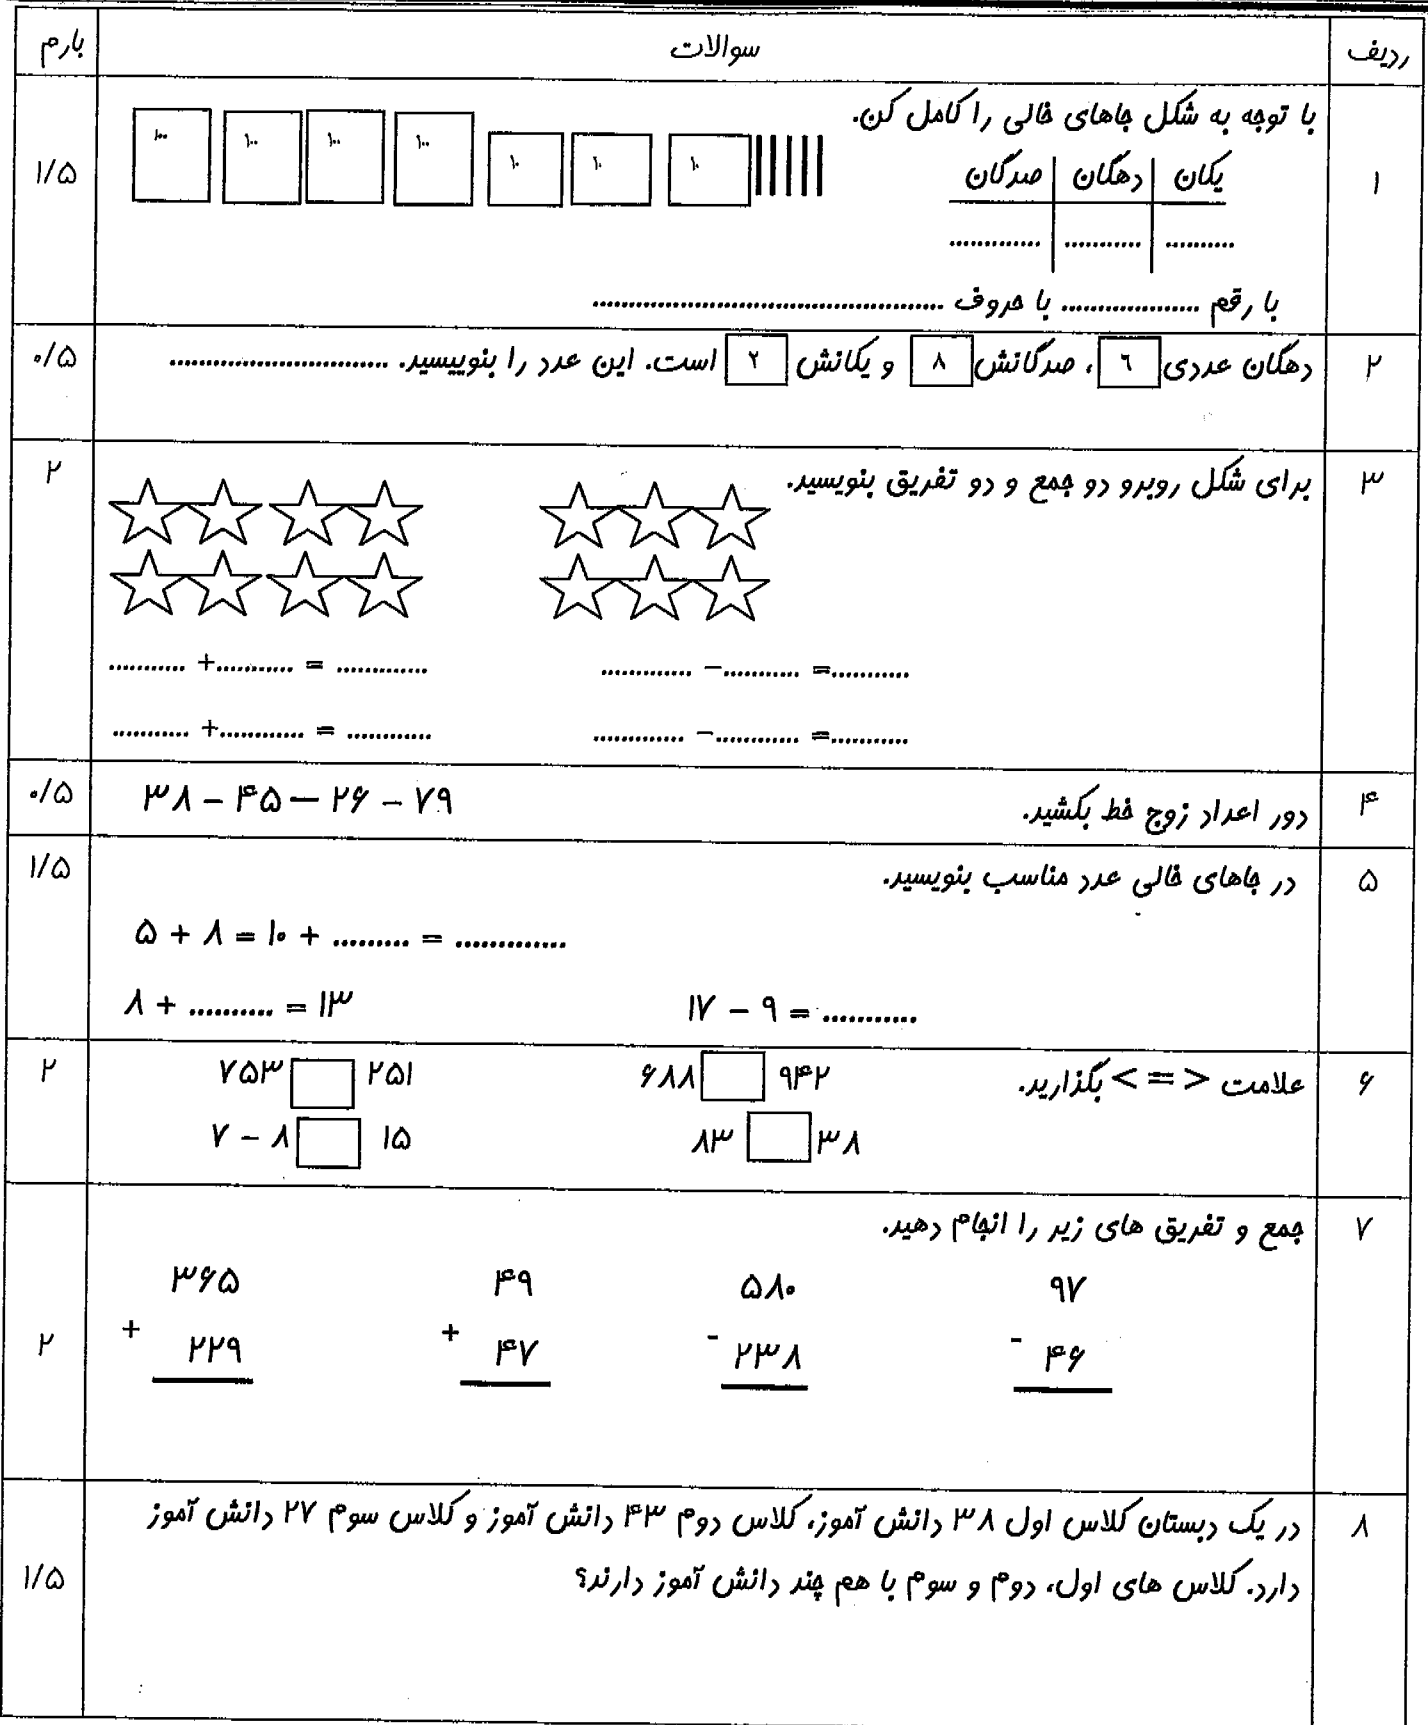 ردیف سوالات بارم
۱ با توجه به شکل جاهای خالی را کامل کن. ۱/۵
۱۰۰ ۱۰۰ ۱۰۰ ۱۰۰ ۱۰ ۱۰ ۱۰
یکان دهگان صدگان
.......... ........... .............
با رقم .................... با حروف ..................................................
۲ دهگان عددی ٦ ، صدگانش ۸ و یکانش ۲ است. این عدد را بنوییسید. ............................... ۰/۵
۳ برای شکل روبرو دو جمع و دو تفریق بنویسید. ۲
........... +........... = ............. ............. –........... =...........
........... +............ = ............ ............. –............ =...........
۴ دور اعداد زوج خط بکشید. ۰/۵
۳۸ – ۴۵ – ۲۶ – ۷۹
۵ در جاهای خالی عدد مناسب بنویسید. ۱/۵
۵ + ۸ = ۱۰ + ......... = .............
۸ + .......... = ۱۳ ۱۷ – ۹ = ...........
۶ علامت < = > بگذارید. ۲
۷۵۳ ۲۵۱ ۶۸۸ ۹۴۲
۷ – ۸ ۱۵ ۸۳ ۳۸
۷ جمع و تفریق های زیر را انجام دهید. ۲
۳۶۵ ۴۹ ۵۸۰ ۹۷
+ ۲۲۹ + ۴۷ - ۲۳۸ - ۴۶
۸ در یک دبستان کلاس اول ۳۸ دانش آموز، کلاس دوم ۴۳ دانش آموز و کلاس سوم ۲۷ دانش آموز
دارد. کلاس های اول، دوم و سوم با هم چند دانش آموز دارند؟ ۱/۵